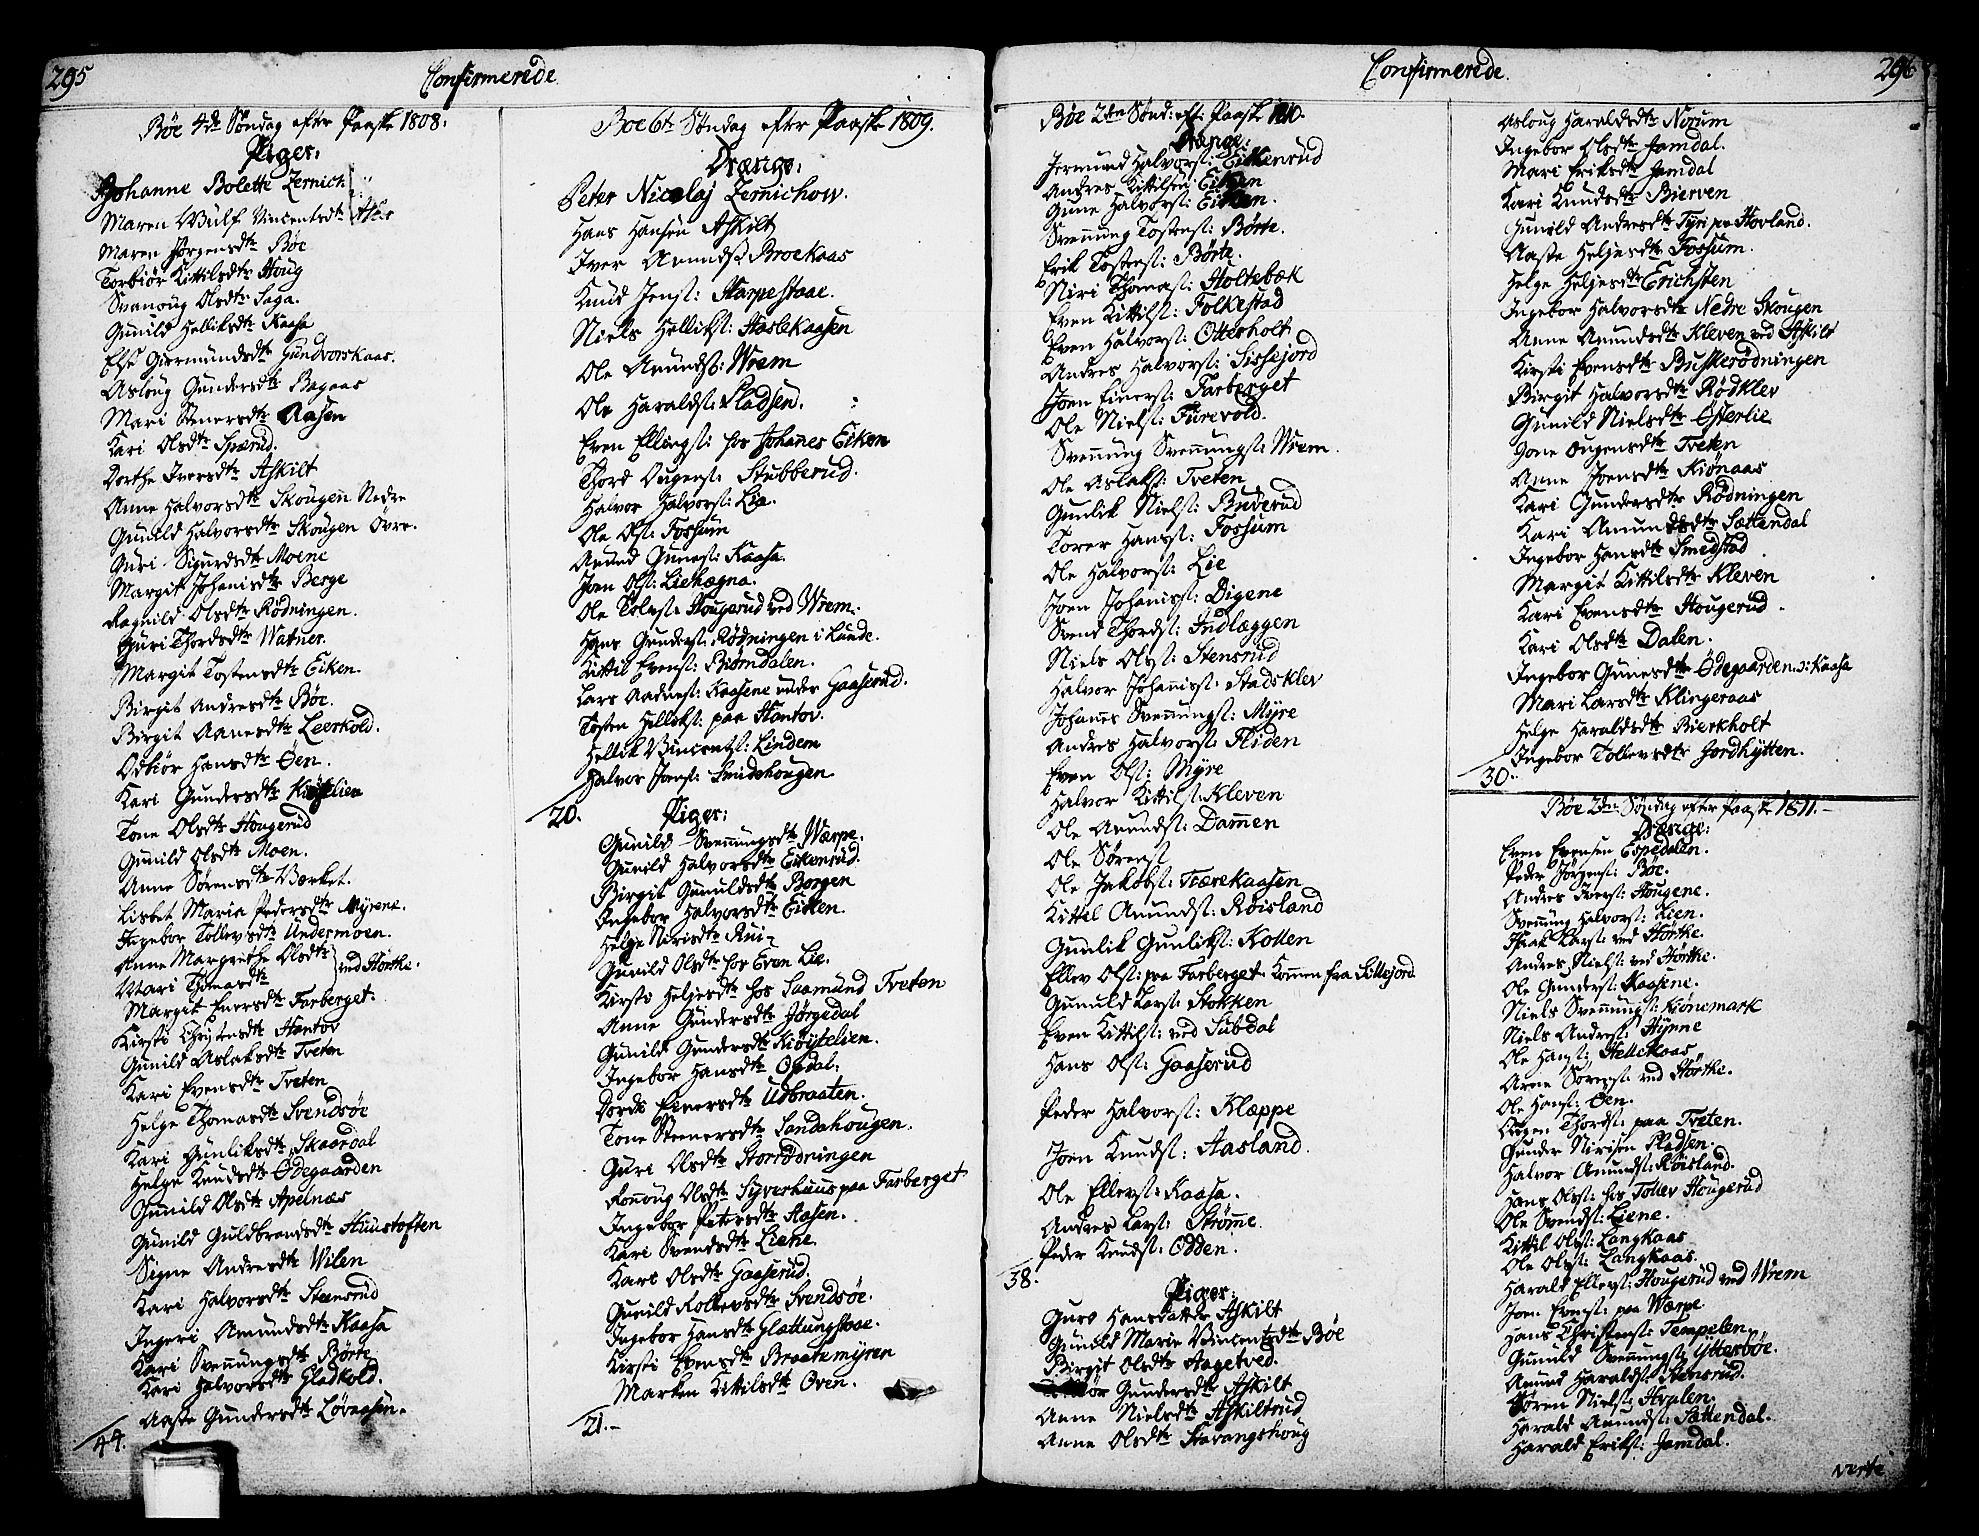 295
Confirmerede
Böe 4de Söndag efter Paaske 1808.
Piger:
Johanne Bolette Zernich
Maren Wulf Vincentsdtr Hus
Maren Jörgensdtr Böe
Torbiör Kittilsdtr Houg
Svanoug Olsdtr Saga.
Gunild Helliksdtr Kaasa
Else Giermundsdtr Gundvorskaas.
Aslaug Gundersdtr Bagaas
Mari Stenersdtr Aasen
Kari Olsdtr Sperud.
Dorthe Iversdtr Askilt
Anne Halvorsdtr Skougen Nedre
Gunild Halvorsdtr Skougen Övre.
Guri Sigurdsdtr Moene
Margit Johanisdtr Berge
Ragnild Olsdtr Rödningen.
Guri Thordsdtr Watner.
Margit Tostensdtr Eiken.
Birgit Andresdtr Böe.
Birgit Aanesdtr Leerkold.
Odbiör Hansdtr Öen.
Kari Gundersdtr
Tone Olsdtr Hougerud
Gunild Olsdtr Moen.
Anne Sörensdtr Værket.
Lisbet Maria Pedersdtr Myrene.
Ingebor Tollevsdtr Undermoen.
Anne Margrethe Olsdtr
Mari Thomasdtr ved Hörthe.
Margit Enersdtr Farberget.
Kirsti Christensdtr Hantov
Gunild Aslaksdtr Tveten
Kari Evensdtr Tveten
Helge Thomasdtr Svendsöe
Kari Gunliksdtr Skaardal
Helge Knudsdtr Ödegaarden
Gunild Olsdtr Apelnæs
Gunild Guldbrandsdtr Huustoften
Signe Andresdtr Wilen
Kari Halvorsdtr Steensrud
Ingeri Amundsdtr Kaasa
Kari Svennungsdtr Börte
Kari Halvorsdtr Gladkold.
Aaste Gundersdtr Lövaasen.
44.
Boe 6te Söndag efter Paaske 1809.
Drænge:
Peter Nicolaj Zernichow.
Hans Hansen Askilt
Iver Anunds: Broekaas
Knud Jens: Skarpestaae.
Niels Helliks: Haslekaasen
Ole Anunds: Wrem
Ole Haralds: Pladsen.
Even Ellings: hos Johannes Eiken
Thord Ougens: Stubberud.
Halvor Halvors: Lia.
Ole Ols: Fossum
Anund Gunes: Kaasa.
Joen Ols: Liehægna.
Ole Tolvs: Hougerud ved Wrem.
Hans Gunders: Rödningen i Lunde.
Kittil Evens: Biörndalen.
Lars Aadnes: Kaasene under Gaaserud.
Tosten Helliks: paa Hantov.
Hellik Vincents: Lindem
Halvor Jons: Smidshougen
20.
Piger:
Gunild Svennungsdtr Wærpe.
Gunild Halvorsdtr Eikenrud.
Birgit Gunuldsdtr Borgen
Ingebor Halvorsdtr Eiken.
Helge Nirisdtr Rui
Gunild Olsdtr hos Even Lie.
Kirsti Heljesdtr hos Saamund Tveten
Anne Gundersdtr Jörgedal
Gunild Gundersdtr Kiöistelien.
Ingebor Hansdtr Opdal.
Dorde Einersdtr Udbraaten.
Tone Steenersdtr Sandahougen.
Guri Olsdtr Storrödningen
Ronoug Olsdtr Syverhuus paa Farberget
Ingebor Petersdtr Aasen.
Kari Svendsdtr Liene.
Kari Olsdtr Gaaserud.
Gunild Rollevsdtr Svendsöe.
Ingebor Hansdtr Glattungstoe.
Kirsti Evensdtr Braatemyren
Marthe Kittilsdtr Oven.
21.
Confirmerede.
296
Böe 2den Sönd: eft: Paaske 1810.
Drænge:
Jermund Halvors: Eikenrud
Andres Kittilsen Eiken
Gune Halvors: Eiken.
Svennung Tostens: Börte.
Erik Tostens: Börte.
Niri Thomas: Holtebæk
Even Kittils: Folkestad
Even Halvors: Otterholt
Andres Halvors: Sissejord
Joen Einers: Farberget
Ole Niels: Furevold.
Svennung Svennungs: Wrem.
Ole Aslaks: Tveten
Gunlik Niels: Bruderud
Torer Hans: Fossum
Ole Halvors: Lie
Joen Johannis: Digene
Svend Thords: Indlæggen
Niels Ols: Stensrud
Halvor Johannis: Stadsklev
Johannes Svennungs: Myre
Andres Halvors: Fliden
Even Ols: Myre
Halvor Kittils: Kleven
Ole Anunds: Dammen
Ole Sörens:
Ole Jakobs: Tiærekaasen
Kittel Anunds: Röisland
Gunlik Gunliks: Kollen
Ellev Ols: paa Farberget. Kommen fra Sillejord
Gunuld Lars: Stokken
Even Kittils: ved Sübdal
Hans Ols: Gaaserud
Peder Halvors: Klæppe
Joen Knuds: Aasland.
Ole Ellevs: Kaasa.
Andres Lars: Strömme.
Peder Knuds: Odden.
38.
Piger:
Guro Hansdatter Askilt
Gunild Marie Vincentsdtr Böe
Birgit Olsdtr Aagetved.
Gundersdtr Askilt
Anne Nielsdtr Askiltrud
Anne Olsdtr Stavangshoug
Asloug Haraldsdtr Norum
Ingebor Olsdtr Jamdal.
Mari Eriksdtr Jamdal
Kari Knudsdtr Bierven
Gunild Andresdtr Tyri paa Hovland.
Aaste Heljesdtr Fossum.
Helge Heljesdtr Erichsten
Ingebor Halvorsdtr Nedre Skougen
Anne Anundsdtr Kleven ved Askilt
Kirsti Evensdtr Buskerödningen
Birgit Halvorsdtr Rödklev
Gunild Nielsdtr Österlie
Tone Ougensdtr Tveten
Anne Joensdtr Kiönaas
Kari Gundersdtr Rödningen
Kari Amundsdtr Sættendal
Ingebor Hansdtr Smedstad
Margit Kittilsdtr Kleven
Kari Evensdtr Hougerud.
Kari Olsdtr Dalen.
Ingebor Gunesdtr Ödegaarden : Kaasa
Mari Larsdtr Klingeraas
Helge Haraldsdtr Bierkholt
Ingebor Tollevsdtr Jordhytten.
30.
Böe 2den Söndag efter Paaske 1811.
Drænge:
Even Evensen Espedalen.
Peder Jörgens: Böe.
Andres Ivers: Hougene.
Svennung Halvors: Lien.
Isak Lars: ved Hörthe.
Andres Niels: ved Hörthe.
Ole Gunders: Kaasene.
Niels Svennungs: Kiönemark
Niels Andres: Hynne
Ole Hans: Hellekaas
Arne Sörens: ved Hörthe.
Ole Hans: Öen.
Ougen Thords: paa Tveten.
Gunder Nirisen Pladsen.
Halvor Anunds: Röisland.
Hans Ols: hos Tollev Hougerud
Ole Svends: Liene.
Kittil Ols: Langkaas
Ole Ols: Langkaas.
Harald Ellevs: Hougerud ved Wrem
Joen Evens: paa Wærpe
Hans Christens: Tempelen.
Gunuld Svennungs: Ytterböe.
Anund Haralds: Stensrud.
Sören Niels: Hvalen.
Harald Anunds: Sættendal.
Harald Eriks: Jamdal.
verte